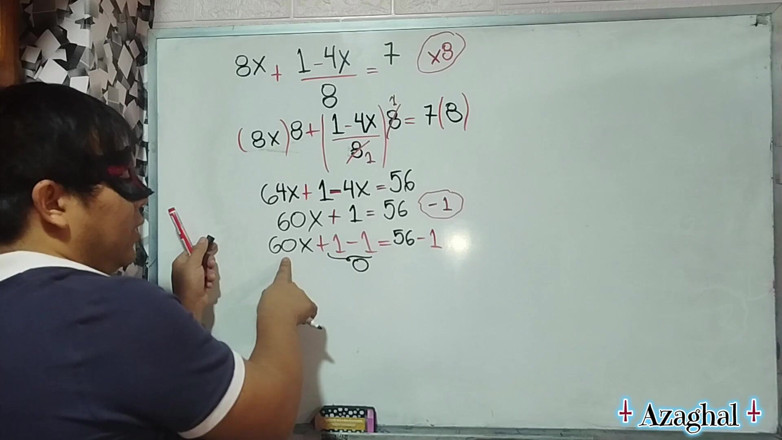 8x + (1-4x)/8 = 7 ×8
(8x)8 + ((1-4x)/8 1) 8 1 = 7(8)
64x + 1 - 4x = 56
60x + 1 = 56 -1
60x + 1 - 1 = 56 - 1
0
Azaghal